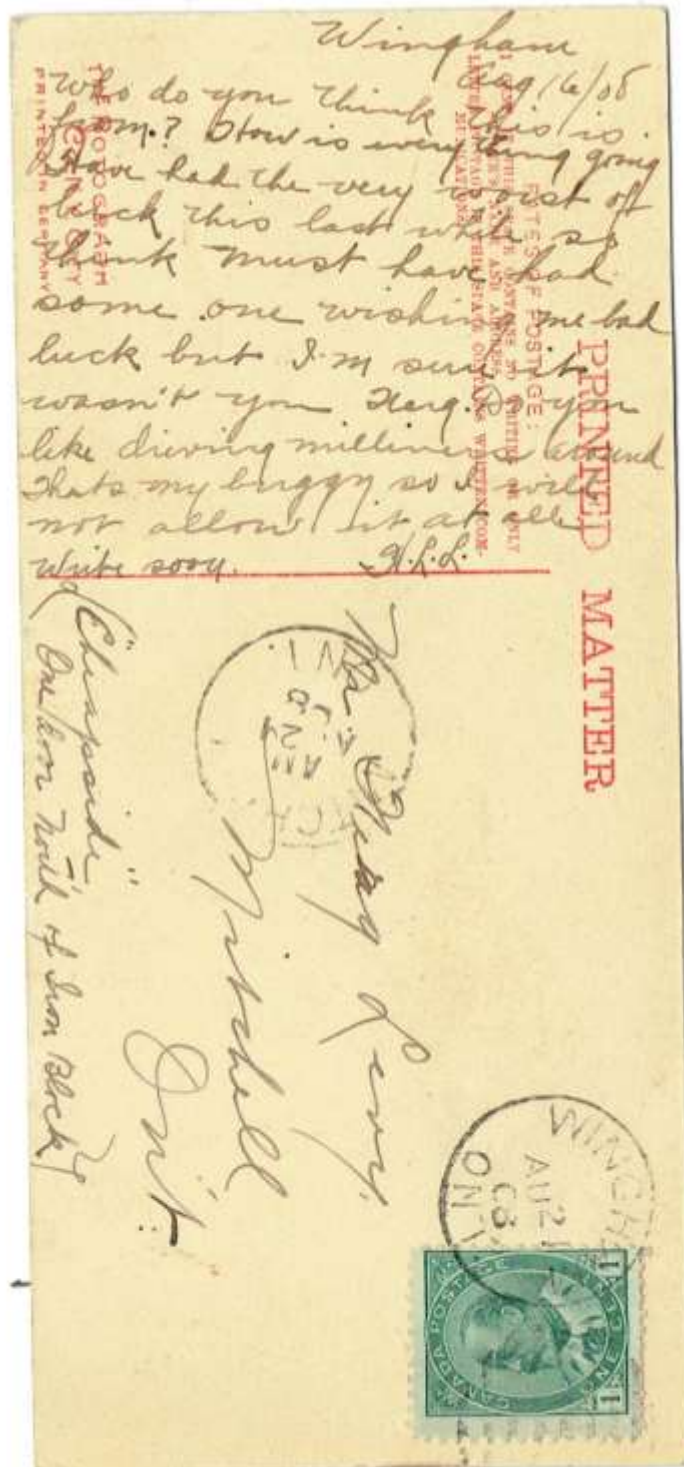 Wingham
Aug 16/08
Who do you think this is
from? How is everything going
Have had the very worst of
luck this last while so
think must have had
some one wishing me bad
luck but I'm sure it
wasn't you you
like driving milliners around
Thats my buggy so I will
not allow it at all
Write soon. H.L.L.
PRINTED MATTER
RATES OF POSTAGE:
THE ROTOGRAPH
N.Y. CITY
PRINTED IN GERMANY
Mr. Levy.
Mitchell
Ont.
"Cheapside"
One door North of Iron Block
WINGH
AU 21
08
ONT
CANADA POSTAGE
ONE CENT
1 1